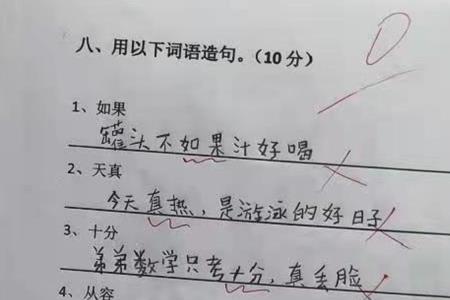 八、用以下词语造句。(10分)
0
1、如果
罐头不如果汁好喝
2、天真
今天真热，是游泳的好日子
3、十分
弟弟数学只考十分，真丢脸
4、从容